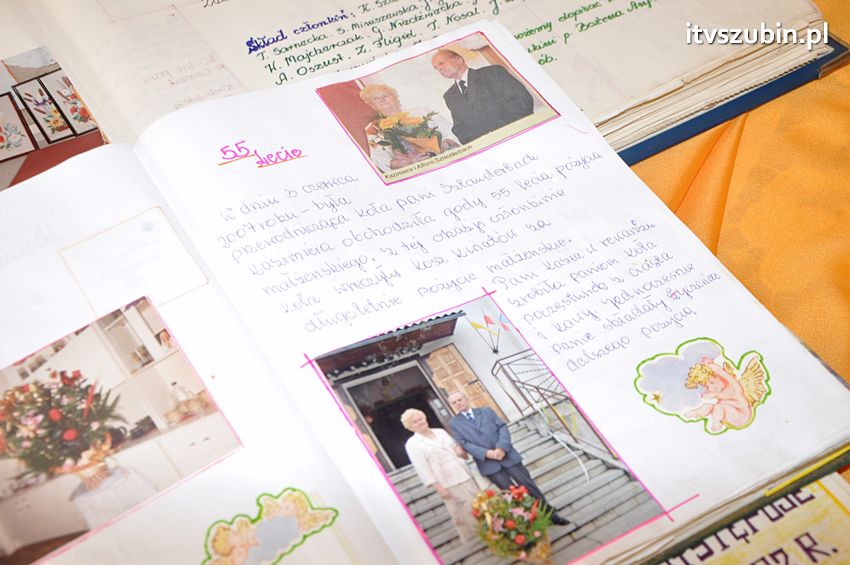 itvszubin.pl
Skład członkiń: K.
T. Sarnecka. S. Miruszewska. J.
H. Majcherczak. G. Niedźwiecka. J.
A. Oszust. Z. Flugiel. T. Nosal. J.
możemy dopisać
p. Bożena
Kazimiera i Alfons Szlauderbach
55 lecie
W dniu 3 czerwca
2007 roku - była
przewodnicząca koła pani Szlauderbach
Kazimiera obchodziła gody 55 lecia pożycia
małżeńskiego. Z tej okazji członkinie
koła wręczyły kosz kwiatów za
długoletnie pożycie małżeńskie.
Pani Kazia w rewanżu
zrobiła paniom koła
poczęstunek z ciasta
i kawy jednocześnie
Panie składały życzenia
dalszego pożycia